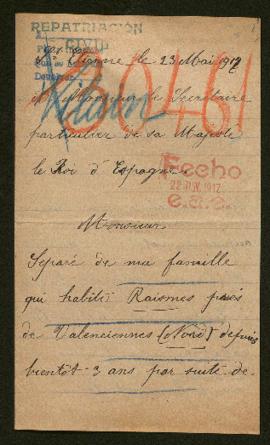 REPATRIACIÓN
CIVIL
Vienne le 23 Mai 1917
à Monsieur le Secrétaire
30461
particulier de sa Majesté
le Roi d'Espagne
Fecho
22 JUN. 1917
Monsieur
Séparé de ma famille
qui habite Raismes près
de Valenciennes (Nord) depuis
bientôt 3 ans par suite de